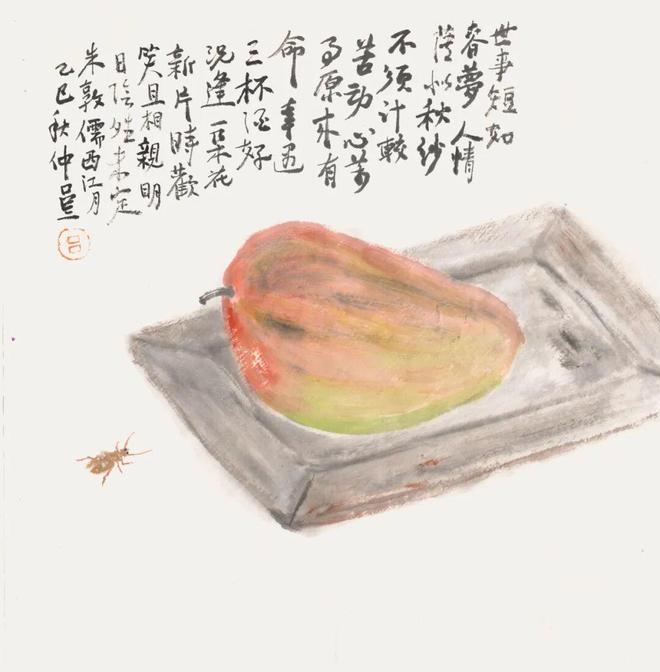 世事短如
春夢人情
薄似秋紗
不須計較
苦劳心萬
事原来有
命幸遇
三杯酒好
况逢一朵花
新片時歡
笑且相親明
日陰晴未定
朱敦儒西江月
乙巳秋仲
吕